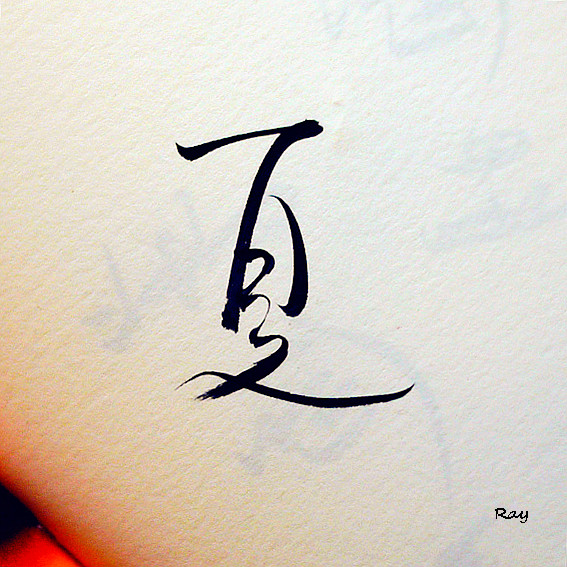 夏
Ray